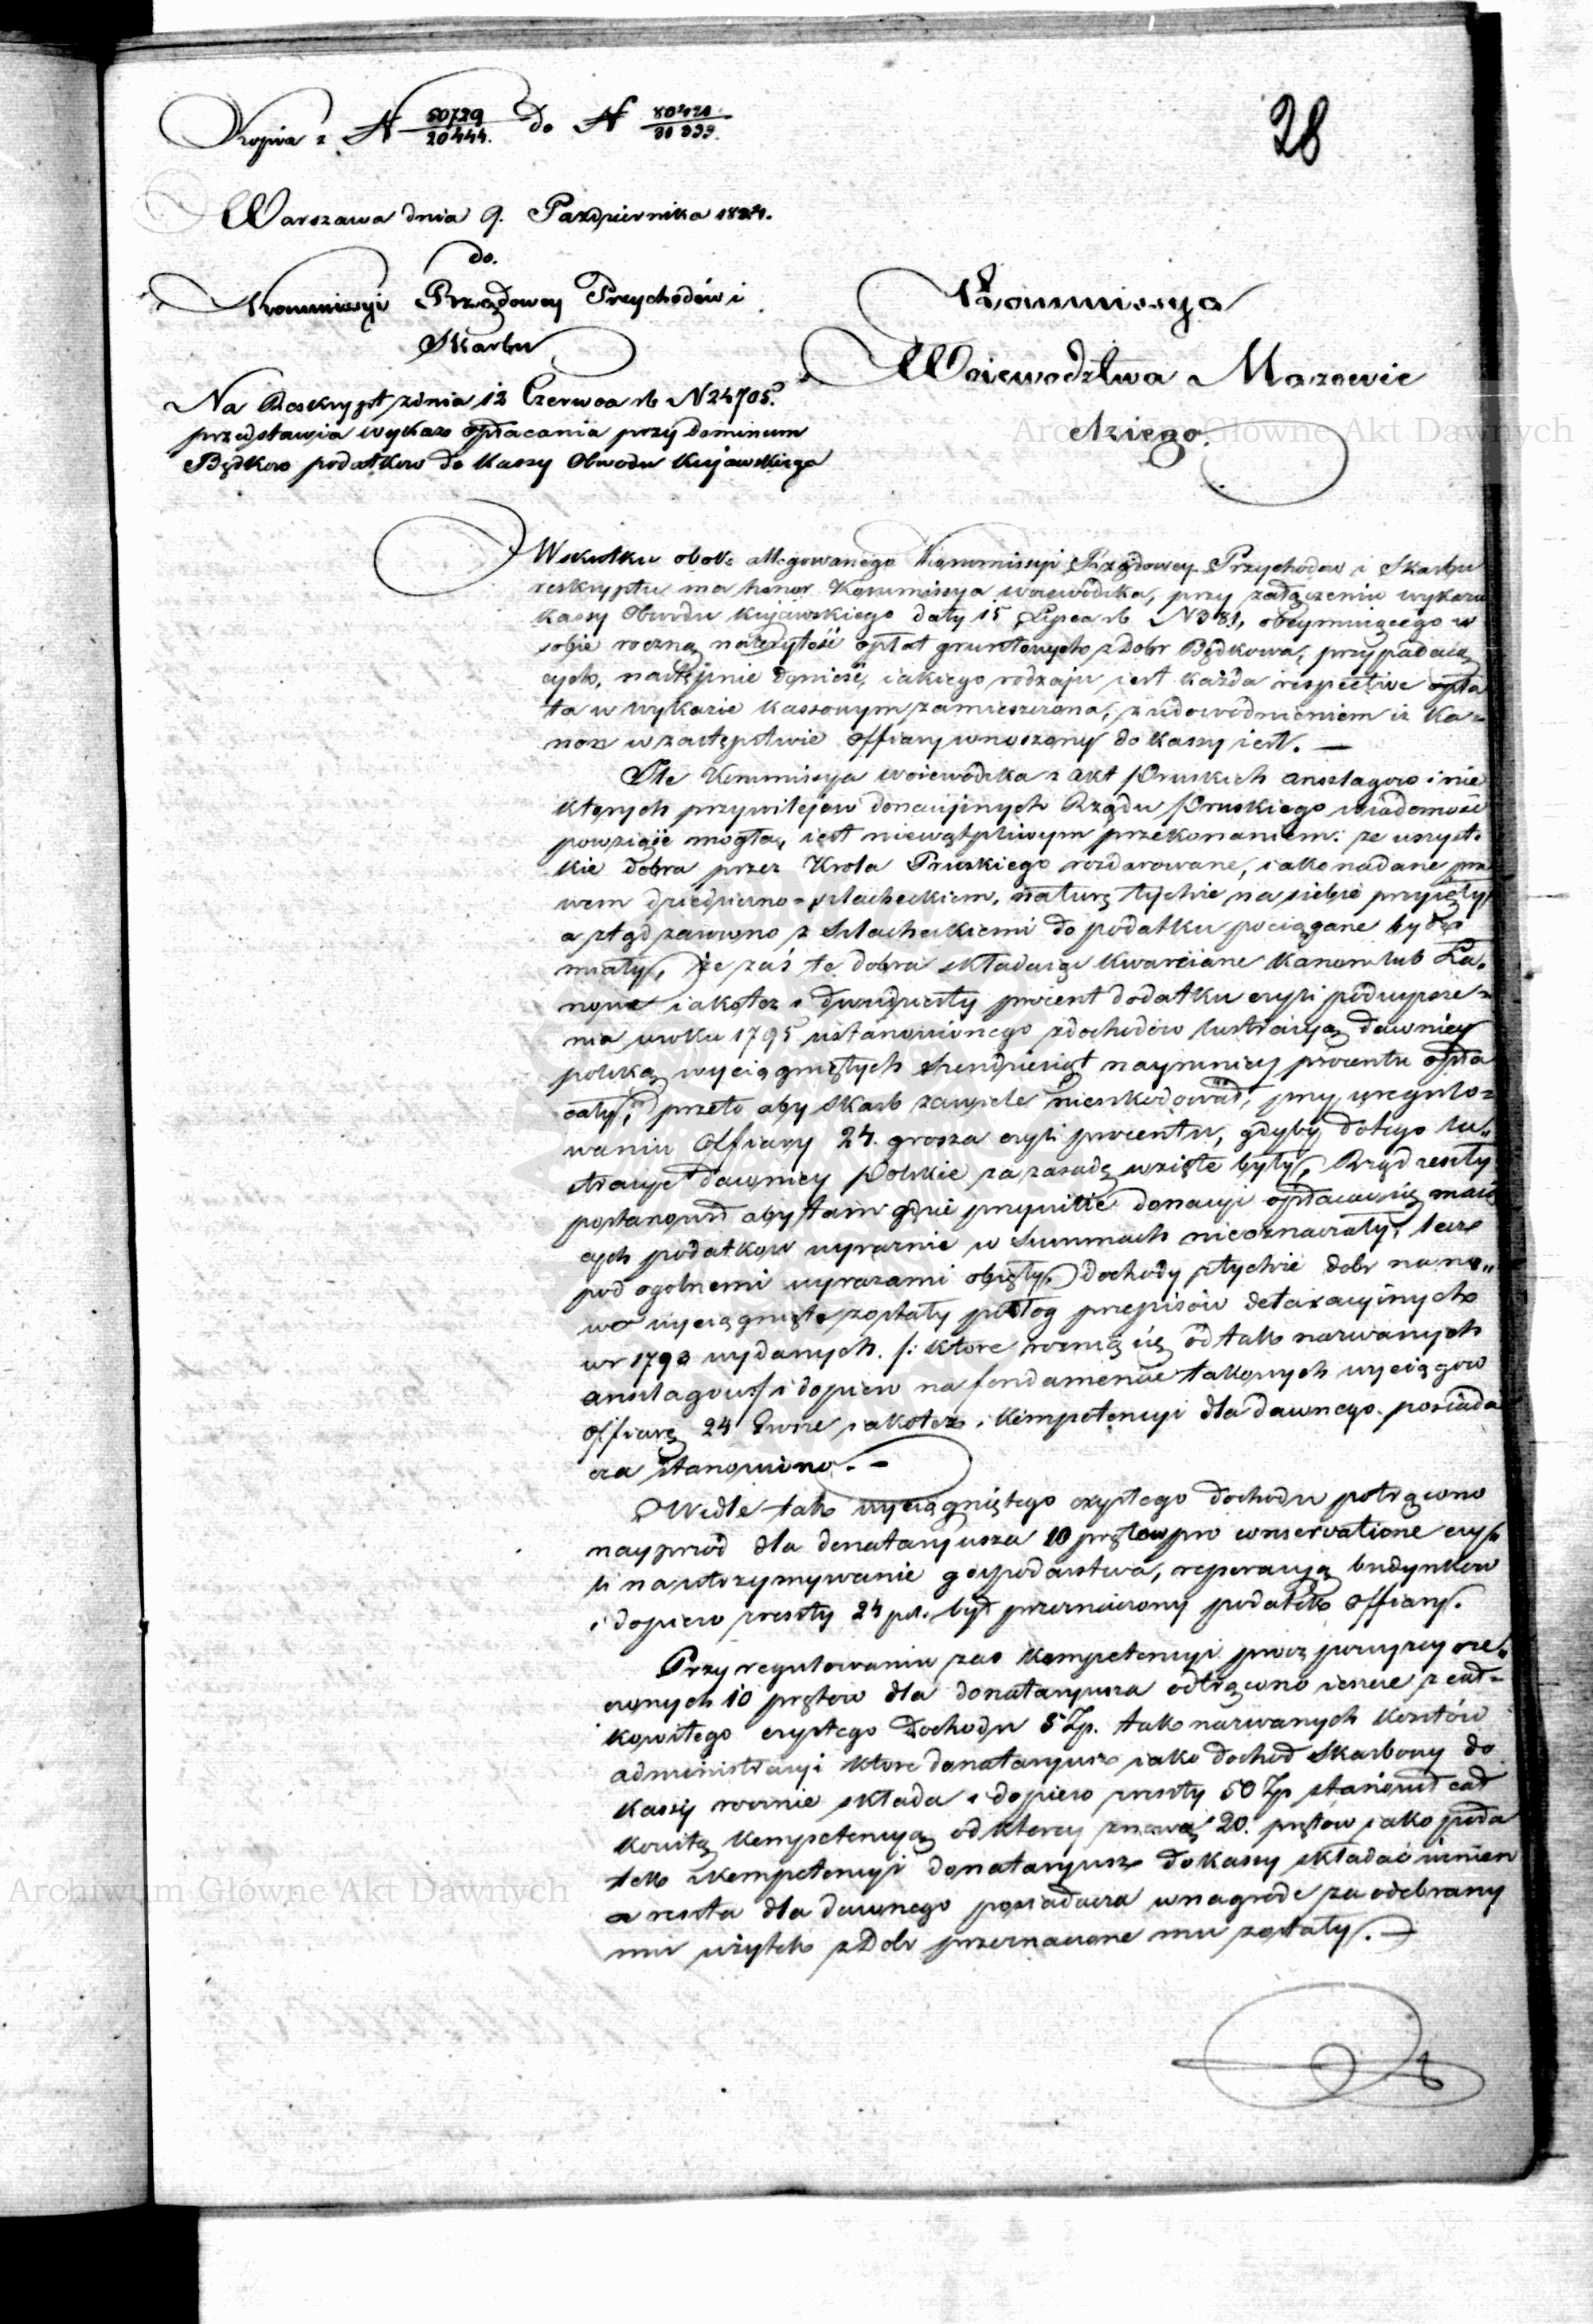 28
Kopia z N 50729/20444. do N
Warszawa dnia 9. Pazdziernika 1824.
do.
Kommissyi Rządowey Przychodów i
Skarbu
Na Reskrypt z dnia 12 Czerwca rb N 24705.
przedstawia wykaz opłacania przy Dominium
Będkow podatkow do Kassy Obwodu Kujawskiego
Kommissya
Woiewodztwa Mazowie
ckiego.
Wskutku obok allegowanego Kommissyi Rządowey Przychodow i Skarbu
reskryptu ma honor Kommissya woiewodzka, przy załączeniu wykazu
Kassy Obwodu Kujawskiego daty 15 Lipca rb N 381, obeymuiącego w
sobie roczną należytość opłat gruntowych z Dobr Będkowa, przypadaią
cych, następnie donieść, iakiego rodzaju iest każda respective opła
ta w wykazie kassowym zamieszczona, z udowodnieniem iż Ka=
non w zastępstwie offiary wnoszony do kassy iest. —
Ile Kommissya woiewodzka z akt Pruskich anszlagow i nie
ktorych przywilejow donacyinych Rządu Pruskiego wiadomość
powziąść mogła, iest niewątpliwym przekonaniem: ze wszyst.
kie dobra przez Krola Pruskiego rozdarowane, iako nadane pra
wem dziedziczno-szlacheckiem, naturę tychże na siebie przyięły
a ztąd zarowno z Szlacheckiemi do podatku pociągane bydź
miały, że zaś te dobra składaiąc kwarciane Kanon lub Ła.
nowe iakotez i dwudziesty procent dodatku czyli podwyższe=
nia w roku 1795 ustanowionego z dochodów lustracyą dawniey
polską wyciągniętych, naymniey procentu opła
cały, przeto aby Skarb zawiele nieszkodował, przy uregulo=
waniu Offiary 24. grosza czyli procentu, gdyby do tego lu„
stracye dawniey Polskie za zasadę wzięte były, Rząd reszty
postanowił aby tam gdzie przywileie donacyi opłacać się maią
cych podatkow wyraznie w Summach nieoznaczały, lecz
pod ogolnemi wyrazami obięły, dochody ztychże dobr na no„
wo wyciągnięte zostały podług przepisów detaxacyinych
w r 1793 wydanych. /: ktore rożnią się od tak nazwanych
anszlagow:/ i dopiero na fondamencie takowych wyciągow
Offiarę 24 Grosze iakotez i Kompetencyi dla dawnego posiada
cza stanowiono. -
Wedle tak wyciągniętego czystego dochodu potrącono
nayprzod dla donataryusza 10 prętow pro conservatione czy=
li na utrzymywanie gospodarstwa, reperacyą budynkow
i dopiero z reszty 24 pct. był przeznaczony podatek Offiary.
Przy regulowaniu zas Kompetencyi procz powyzey rze„
czonych 10 prętow dla donataryusza odtrącono ieszcze z cał=
kowitego czystego dochodu 5 Zp. tak nazwanych kosztów
administracyi ktore donataryusz iako dochod Skarbowy do
Kassy rocznie składa i dopiero z reszty 50 Zp stanowił cał
kowitą Kompetencyą od ktorey znowu 20. prętów iako poda
tek z kompetencyi donataryusz do kassy składać winien
a reszta dla dawnego posiadacza w nagrodę za odebrany
mu użytek z Dobr przeznaczone mu zostały. —
Archiwum Główne Akt Dawnych
Archiwum Główne Akt Dawnych